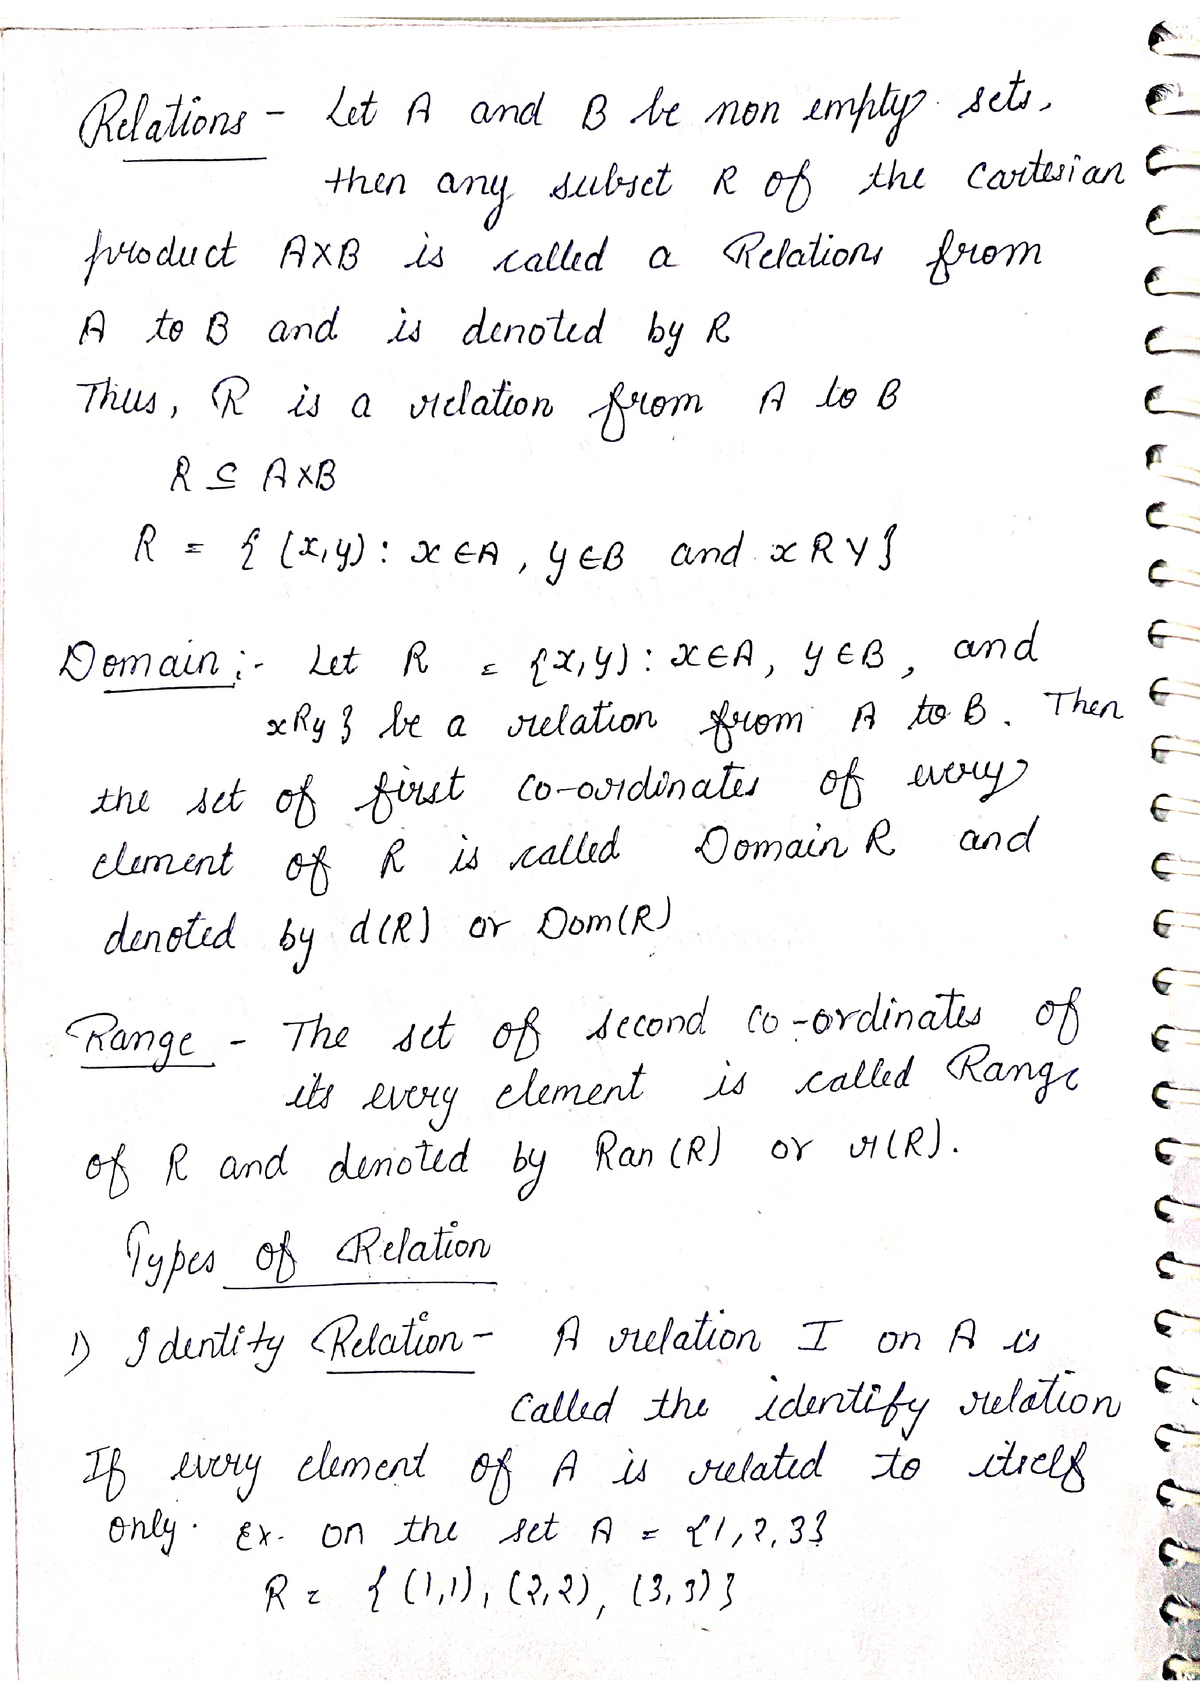 Relations - Let A and B be non empty sets,
then any subset R of the Cartesian
product A×B is called a Relations from
A to B and is denoted by R
Thus, R is a relation from A to B
R ⊆ A×B
R = { (x,y) : x ∈ A , y ∈ B and x R Y }
Domain :- Let R = {x,y) : x ∈ A, y ∈ B , and
xRy } be a relation from A to B. Then
the set of first co-ordinates of every
element of R is called Domain R and
denoted by d(R) or Dom(R)
Range - The set of second co-ordinates of
its every element is called Range
of R and denoted by Ran (R) or r(R).
Types of Relation
1) Identity Relation - A relation I on A is
Called the identify relation
If every element of A is related to itself
only. Ex. on the set A = {1,2,3}
R = { (1,1), (2,2), (3,3) }